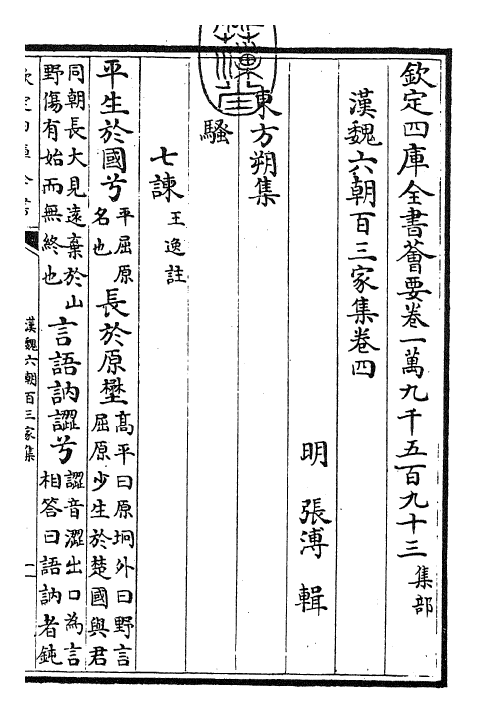 欽定四庫全書薈要卷一萬九千五百九十三 集部
漢魏六朝百三家集卷四
明 張溥 輯
東方朔集
騷
七諫 王逸註
平生於國兮 平屈原名也 長於原壄 高平曰原坰外曰野言屈原少生於楚國與君
同朝長大見遠棄於山野傷有始而無終也 言語訥譅兮 譅音澀出口為言相答曰語訥者鈍
漢魏六朝百三家集